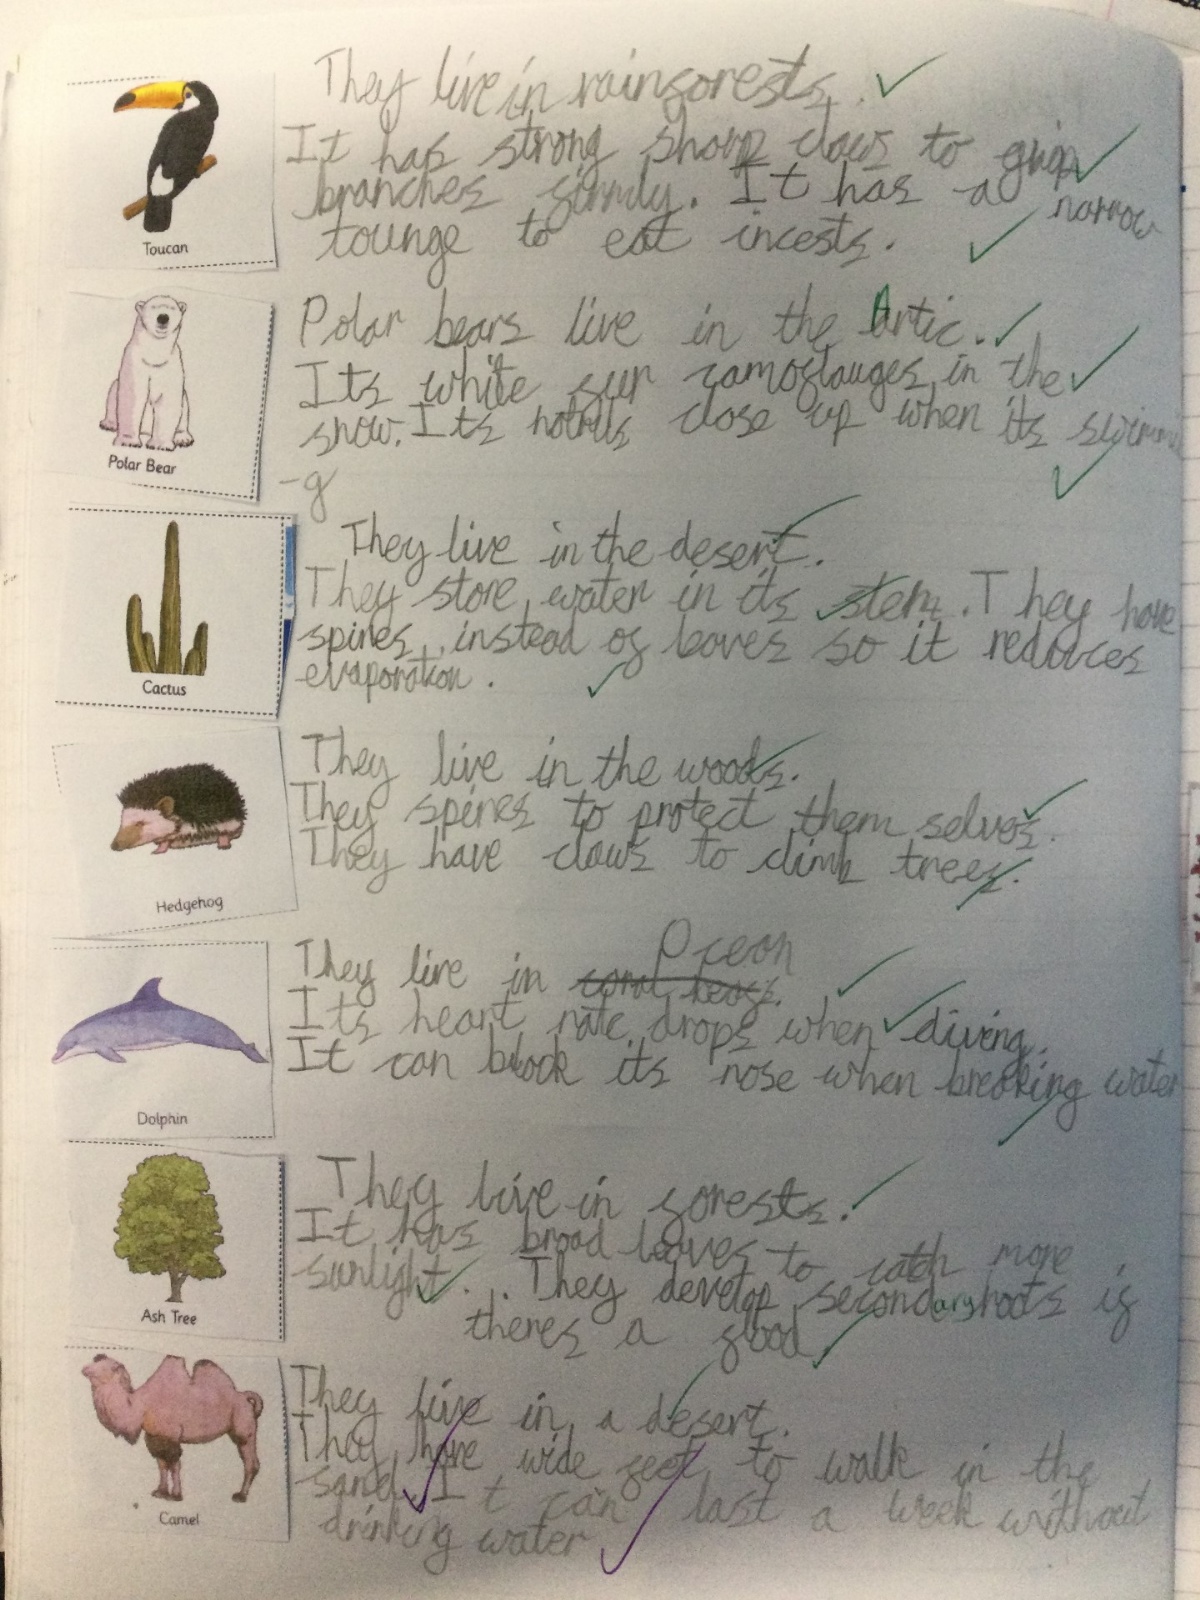 They live in rainforests.
It has strong sharp claws to grip
branches firmly. It has a narrow
tounge to eat incests.
Toucan
Polar bears live in the Artic.
Its white fur camoflauges in the
snow. Its notrils close up when its swimm
-g
Polar Bear
They live in the desert.
They store water in its stem. They have
spines instead of leaves so it reduces
evaporation.
Cactus
They live in the woods.
They spines to protect them selves.
They have claws to climb trees.
Hedgehog
Ocean
They live in
Its heart rate drops when diving.
It can block its nose when breaking water
Dolphin
They live in forests.
It has broad leaves to catch more
sunlight. They develop secondary roots if
theres a flood
Ash Tree
They live in a desert.
They have wide feet to walk in the
sand. It can last a week without
drinking water
Camel